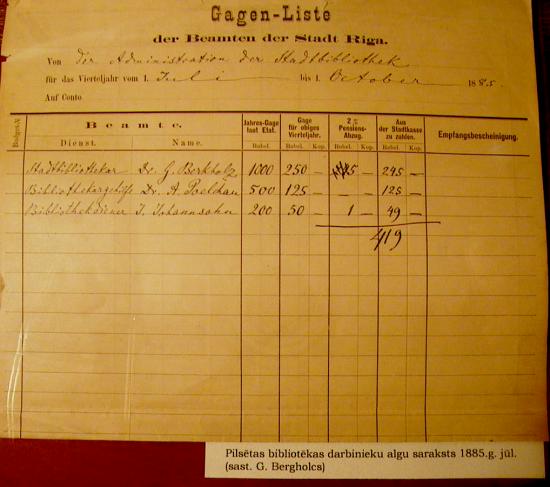 Gagen-Liste
der Beamten der Stadt Riga.
Von der Administration der Stadtbibliothek
für das Vierteljahr vom 1. Juli bis 1. October 1885.
Auf Conto
Budget-№ Beamte. Jahres-Gage laut Etat. Gage für obiges Vierteljahr. 2% Pensions-Abzug. Aus der Stadtkasse zu zahlen. Empfangsbescheinigung.
Dienst. Name. Rubel. Rubel. Kop. Rubel. Kop. Rubel. Kop.
Stadtbibliothekar Dr. G. Berkholz 1000 250 — 5 — 245 —
Bibliothekargehilfe Dr. A. Poelchau 500 125 — 125 —
Bibliothekdiener J. Johannsohn 200 50 — 1 — 49 —
419
Pilsētas bibliotēkas darbinieku algu saraksts 1885.g. jūl.
(sast. G. Bergholcs)